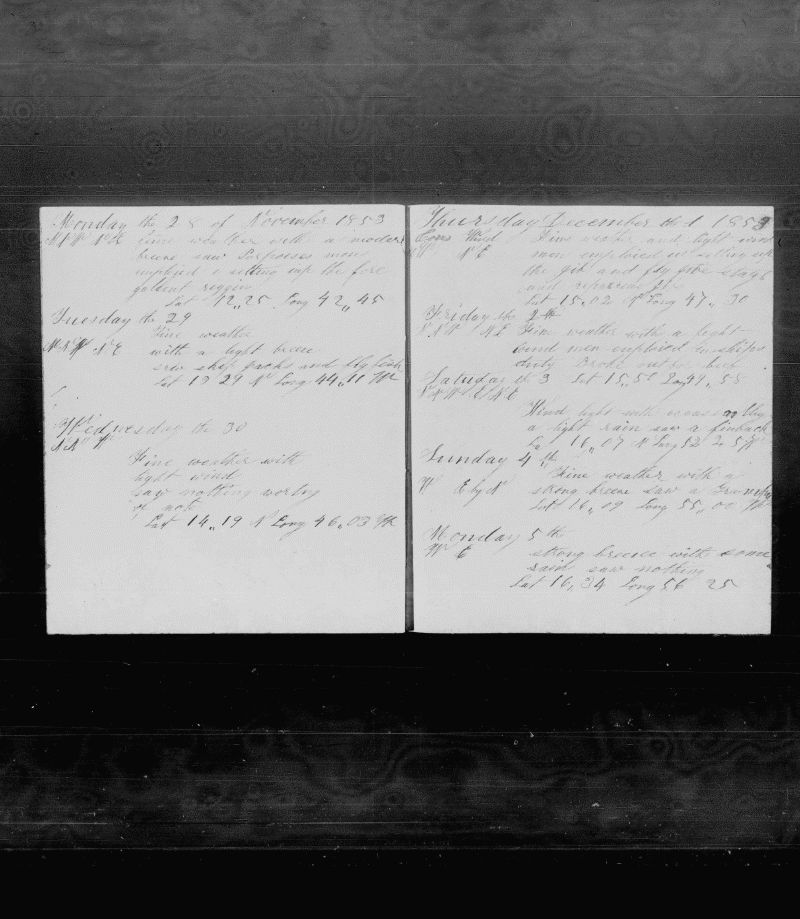 Monday the 28 of November 1853
N N W N E fine weather with a moder
breese saw Porpoises men
employed setting up the fore
galient riggin
Lat 12,,25 Long 42,,45
Tuesday the 29
Fine weather
N N W N E with a light breese
saw skip jacks and flyfish
Lat 13 29 N Long 44,,11 W
Wednesday the 30
N N W
Fine weather with
light wind
saw nothing worthy
of note
Lat 14,,19 N Long 46,,03 W
Thursday December the 1 1853
Cors Wind Fine weather and light wind
W N E men employed on setting up
the gib and fly stays
and
Lat 15,02 N Long 47,,30
Friday the 2th
N N W N E Fine weather with a light
wind men employed in ships
duty Broke out beef
Saturday the 3 Lat 15,50 Long 49,,58
Wind light with occasionally
a light rain saw a finback
Lat 16,,07 N Long 52 25 W
Sunday 4th
Fine weather with a
W E by N strong breese saw a
Lat 16,,09 Long 55,,00 W
Monday 5 the
W E strong breese with some
rain saw nothing
Lat 16,,34 Long 56 25